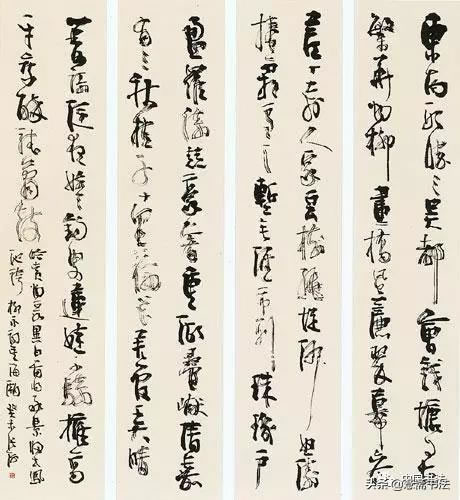 東南形勝三吳都會錢塘自古
繁華烟柳畫橋風簾翠幕參
差十萬人家雲樹繞堤沙怒濤
捲霜雪天塹無涯市列珠璣戶
盈羅綺競豪奢重湖疊巘清嘉
有三秋桂子十里荷花羌管弄晴
菱歌泛夜嬉嬉釣叟蓮娃千騎擁高
牙乘醉聽簫鼓
吟賞烟霞異日圖將好景歸去鳳
池誇 柳永詞望海潮 癸未
头条
书法